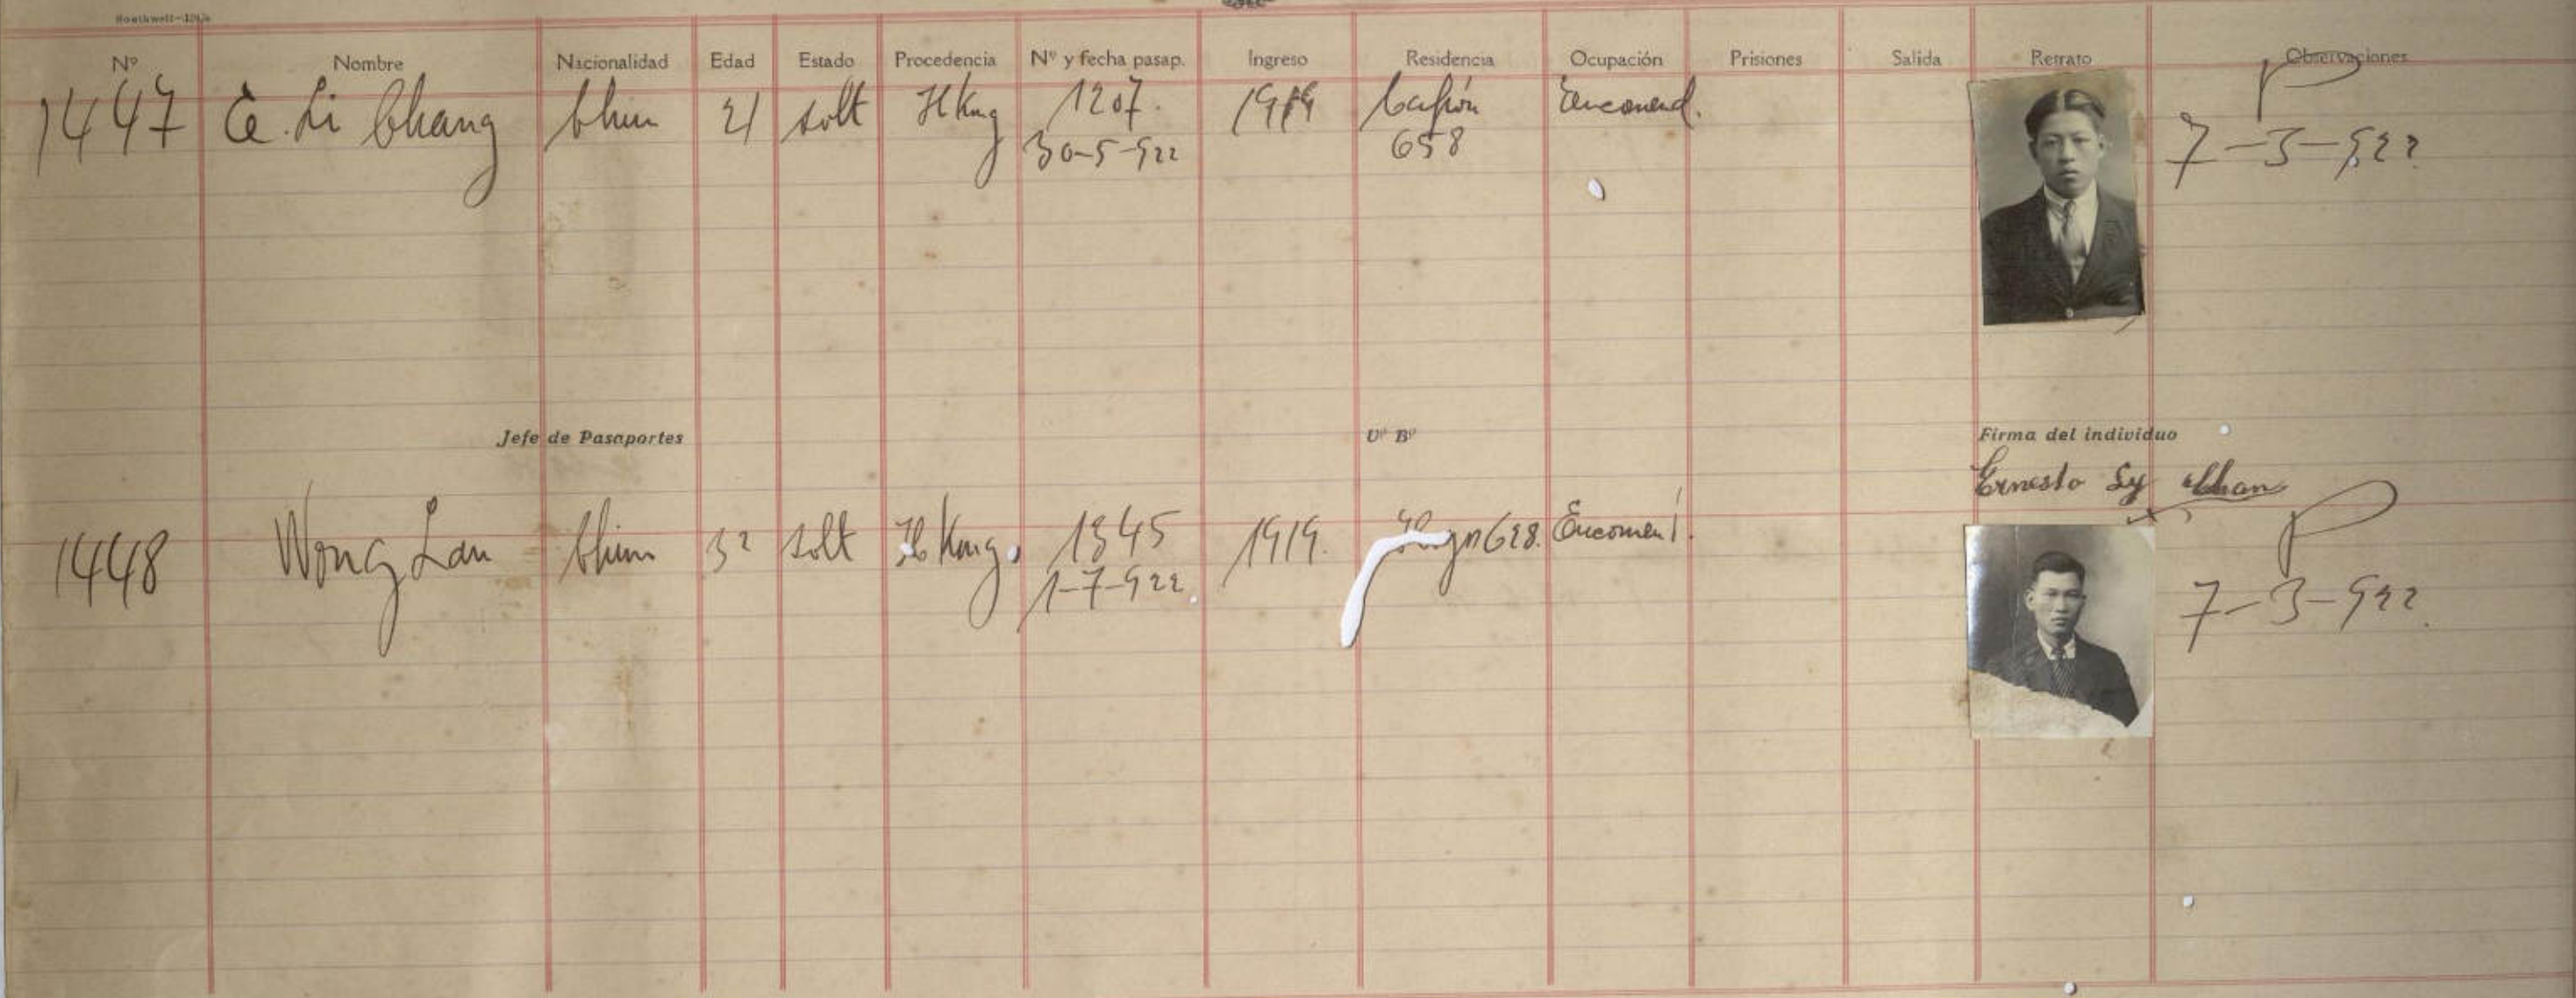 Nº Nombre Nacionalidad Edad Estado Procedencia Nº y fecha pasap. Ingreso Residencia Ocupación Prisiones Salida Retrato Observaciones
1447 E. Li Chang Chin 21 solt HKng 1207. 1919 Capón Encomend. P
30-5-922 658 7-3-922
Jefe de Pasaportes Vº Bº Firma del individuo
Ernesto Sy Chan
1448 Wong Lan Chin 32 solt H Kong. 1345 1919. 628. Encomen P
1-7-922 7-3-922.